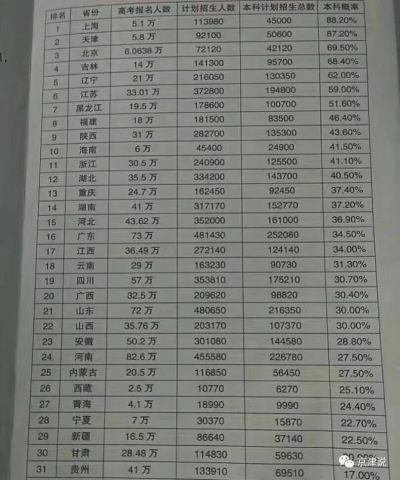 排名 省份 高考报名人数 计划招生人数 本科计划招生总数 本科概率
1 上海 5.1 万 113980 45000 88.20%
2 天津 5.8 万 92100 50600 87.20%
3 北京 6.0638 万 72120 42120 69.50%
4 吉林 14 万 141300 95700 68.40%
5 辽宁 21 万 216050 130350 62.00%
6 江苏 33.01 万 372800 194800 59.00%
7 黑龙江 19.5 万 178600 100700 51.60%
8 福建 18 万 181500 83500 46.40%
9 陕西 31 万 282700 135300 43.60%
10 海南 6 万 45400 24900 41.50%
11 浙江 30.5 万 240900 125500 41.10%
12 湖北 35.5 万 334200 143700 40.50%
13 重庆 24.7 万 162450 92450 37.40%
14 湖南 41 万 317170 152770 37.20%
15 河北 43.62 万 352000 161000 36.90%
16 广东 73 万 481430 252080 34.50%
17 江西 36.49 万 272140 124140 34.00%
18 云南 29 万 163230 90730 31.30%
19 四川 57 万 353810 175210 30.70%
20 广西 32.5 万 209620 98820 30.40%
21 山东 72 万 480650 216350 30.00%
22 山西 35.76 万 203170 107370 30.00%
23 安徽 50.2 万 301080 144580 28.80%
24 河南 82.6 万 455580 226780 27.50%
25 内蒙古 20.5 万 116850 56450 27.50%
26 西藏 2.5 万 10770 6270 25.10%
27 青海 4.1 万 18990 9990 24.40%
28 宁夏 7 万 30370 15870 22.70%
29 新疆 16.5 万 86640 37140 22.50%
30 甘肃 28.48 万 114830 59630
31 贵州 41 万 133910 69510 17.00%
京津说